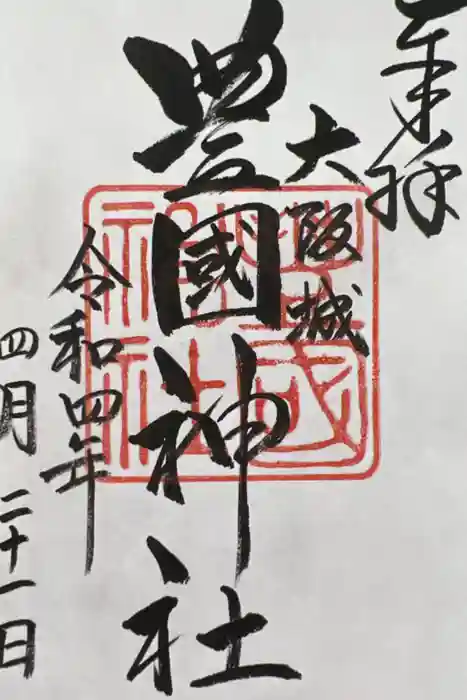 奉拝
大阪城
豊國神社
令和四年
四月二十一日